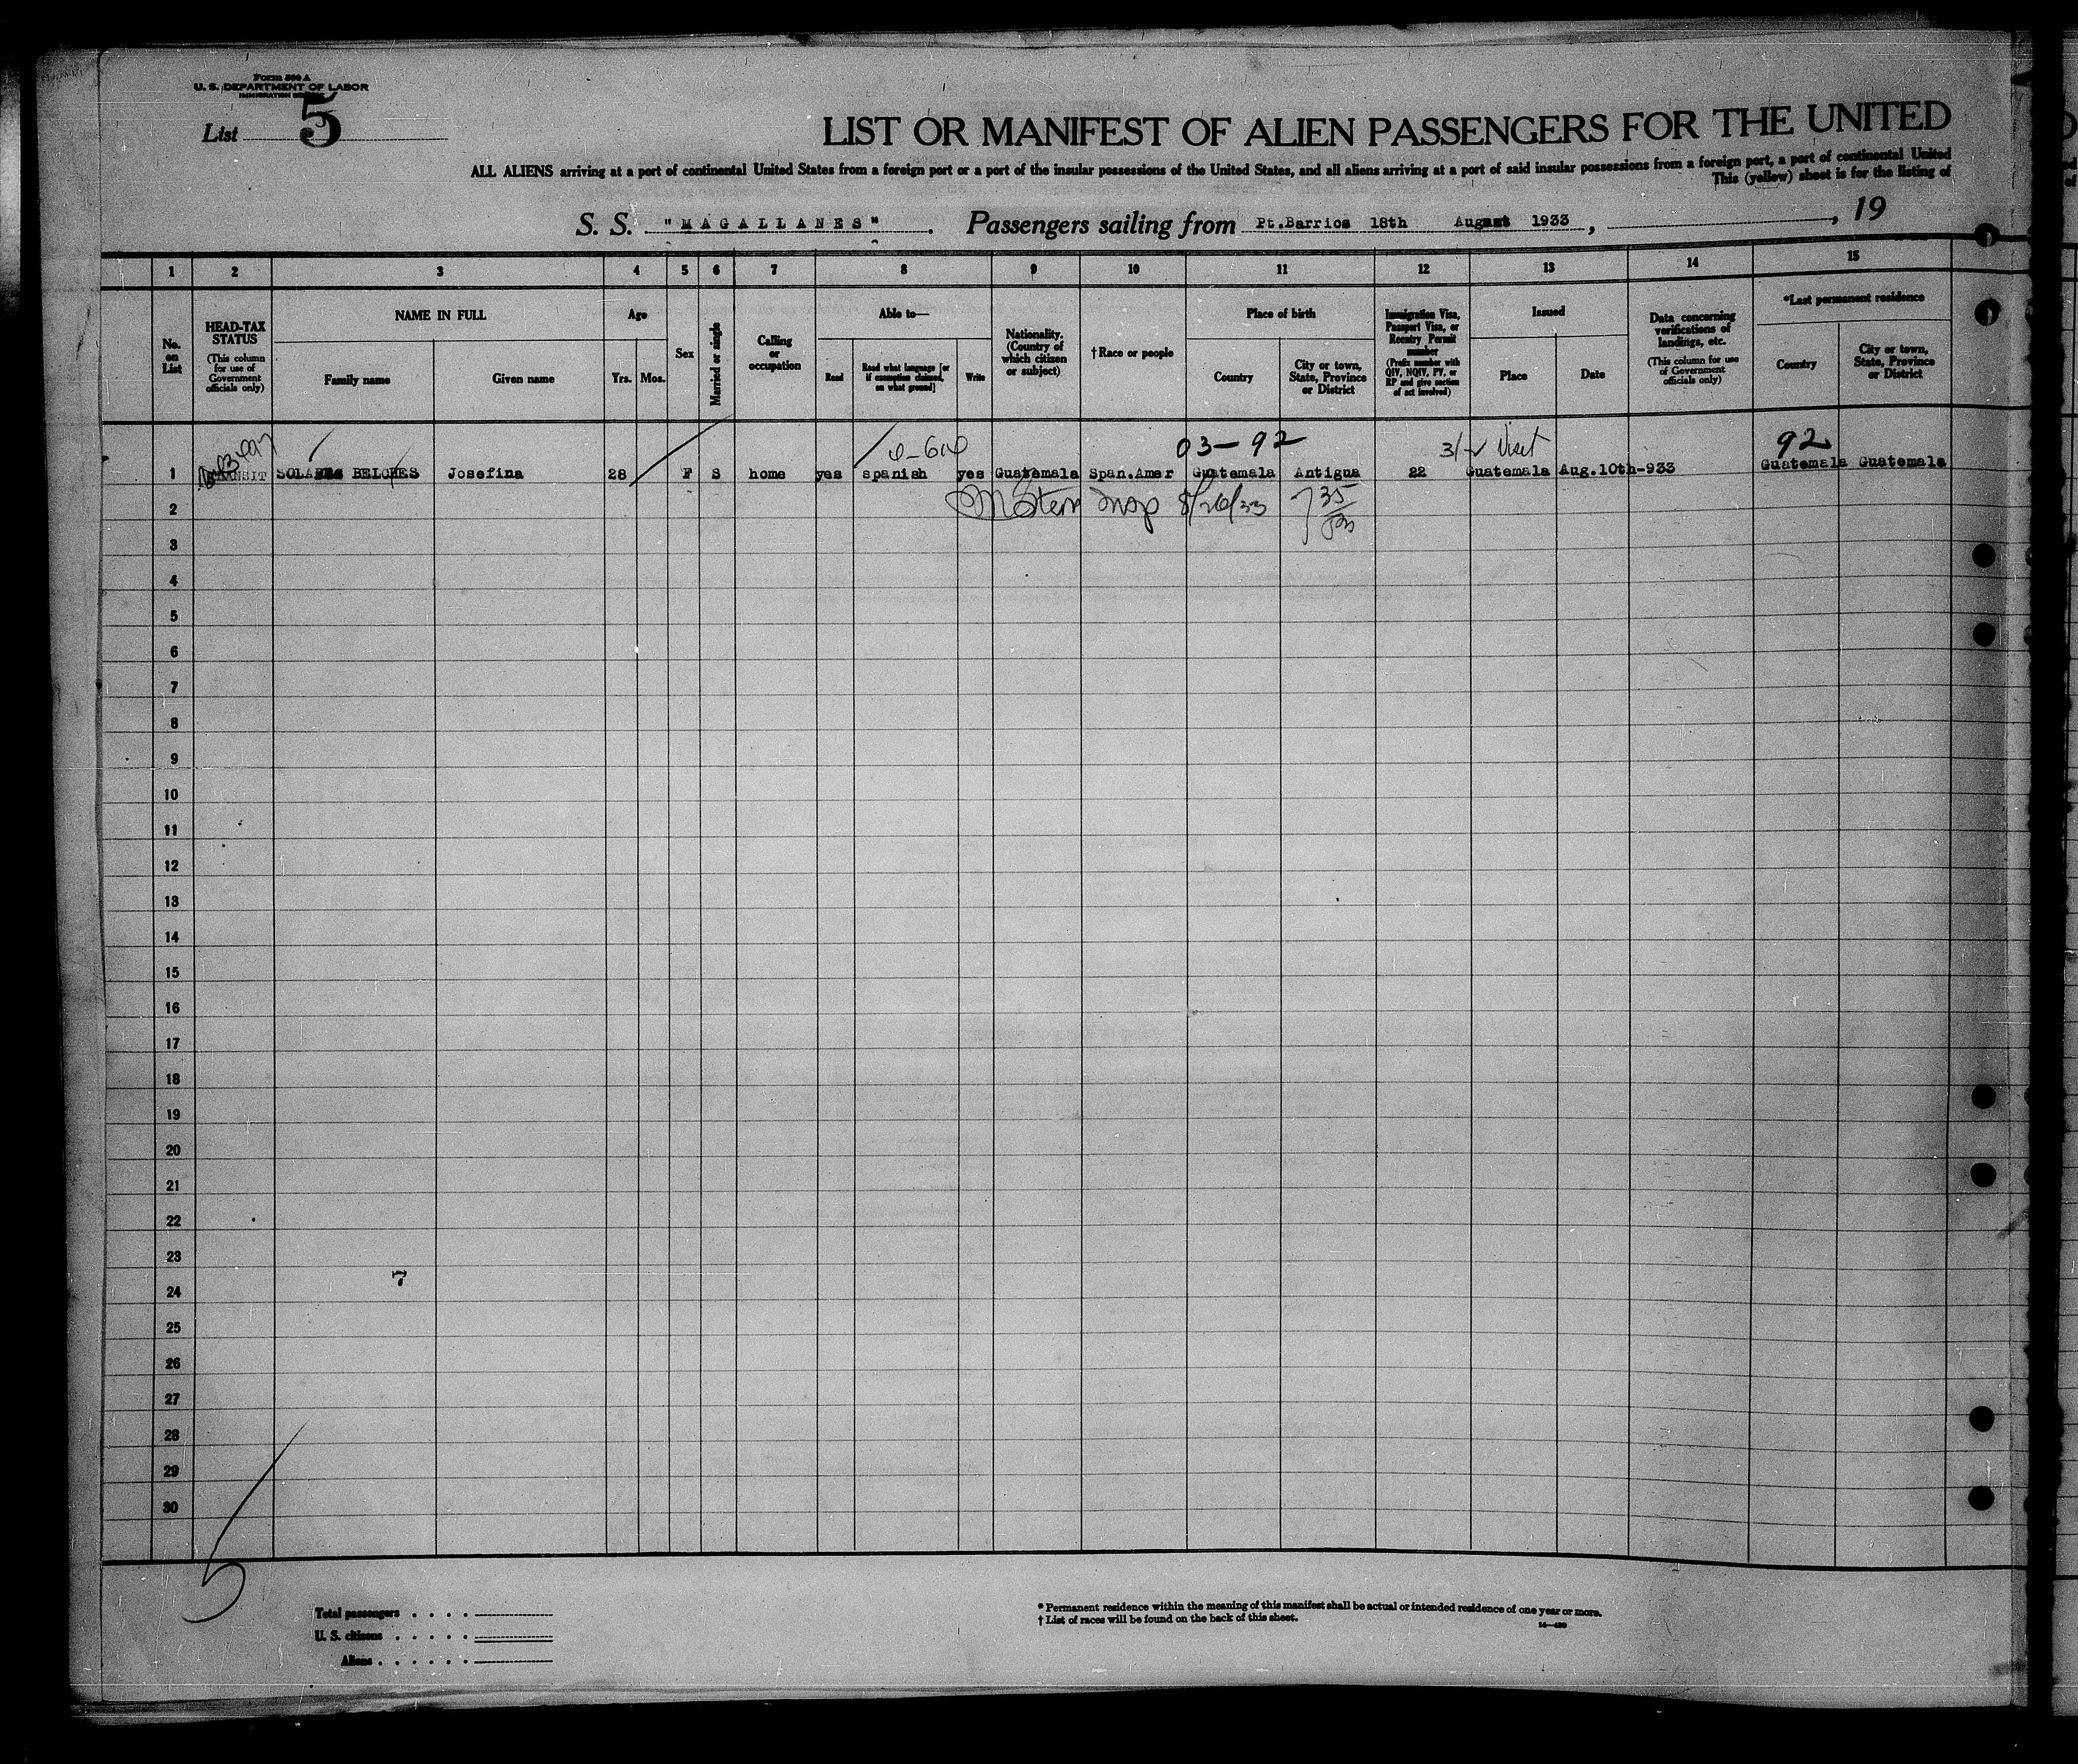 Form 500 A
U. S. DEPARTMENT OF LABOR
IMMIGRATION SERVICE
List 5
LIST OR MANIFEST OF ALIEN PASSENGERS FOR THE UNITED
ALL ALIENS arriving at a port of continental United States from a foreign port or a port of the insular possessions of the United States, and all aliens arriving at a port of said insular possessions from a foreign port, a port of continental United
This (yellow) sheet is for the listing of
S. S. "MAGALLANES". Passengers sailing from Pt.Barrios 18th August 1933, , 19
1 2 3 4 5 6 7 8 9 10 11 12 13 14 15
No. on List
HEAD-TAX STATUS
(This column for use of Government officials only)
NAME IN FULL
Family name
Given name
Age
Yrs. Mos.
Sex
Married or single
Calling or occupation
Able to—
Read
Read what language [or if exemption claimed, on what ground]
Write
Nationality. (Country of which citizen or subject)
†Race or people
Place of birth
Country
City or town, State, Province or District
Immigration Visa, Passport Visa, or Reentry Permit number
(Prefix number with QIV, NQIV, PV, or RP and give section of act involved)
Issued
Place
Date
Data concerning verifications of landings, etc.
(This column for use of Government officials only)
*Last permanent residence
Country
City or town, State, Province or District
03-92 3/ Visit 92
1 TRANSIT SOLARES BELCHES Josefina 28 F S home yes spanish yes Guatemala Span.Amer Guatemala Antigua 22 Guatemala Aug.10th-933 Guatemala Guatemala
2 Insp 8/26/33
3
4
5
6
7
8
9
10
11
12
13
14
15
16
17
18
19
20
21
22
23
7
24
25
26
27
28
29
30
5
Total passengers . . . .
U. S. citizens . . . . .
Aliens . . . . . .
* Permanent residence within the meaning of this manifest shall be actual or intended residence of one year or more.
† List of races will be found on the back of this sheet.